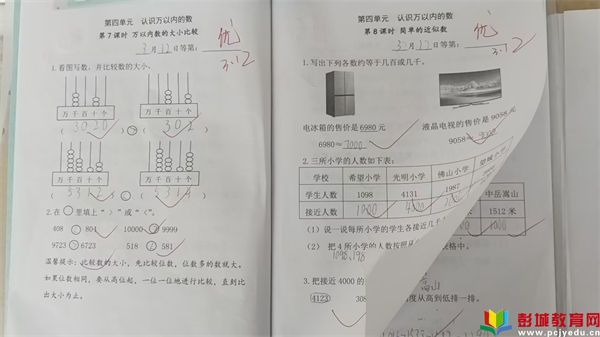 第四单元 认识万以内的数
第7课时 万以内数的大小比较
3月12日等第:
优
3.12
1.看图写数,并比较数的大小。
万千百十个
万千百十个
( 3020 )
( 302 )
万千百十个
万千百十个
2.在○里填上“>”或“<”。
408 < 804 10000 > 9999
9723 > 6723 518 < 581
温馨提示:比较数的大小,先比较位数,位数多的数就大。
如果位数相同,要从高位起,一位一位地进行比较,直到比
出大小为止。
第四单元 认识万以内的数
第8课时 简单的近似数
3月12日等第:
优
3.12
1.写出下列各数约等于几百或几千。
电冰箱的售价是6980元
液晶电视的售价是9058元
6980≈7000
9058≈9000
2.三所小学的人数如下表:
学校 希望小学 光明小学 佛山小学 望城小学
学生人数 1098 4131 1987
接近人数 1000 4000
中岳嵩山
1512米
(1)说一说每所小学的学生各接近几千
(2)把4所小学的人数按照从
格中。
1098,198
3.把接近4000的
4123 308
度从高到低排一排。
彭城教育网
www.pcjyedu.cn